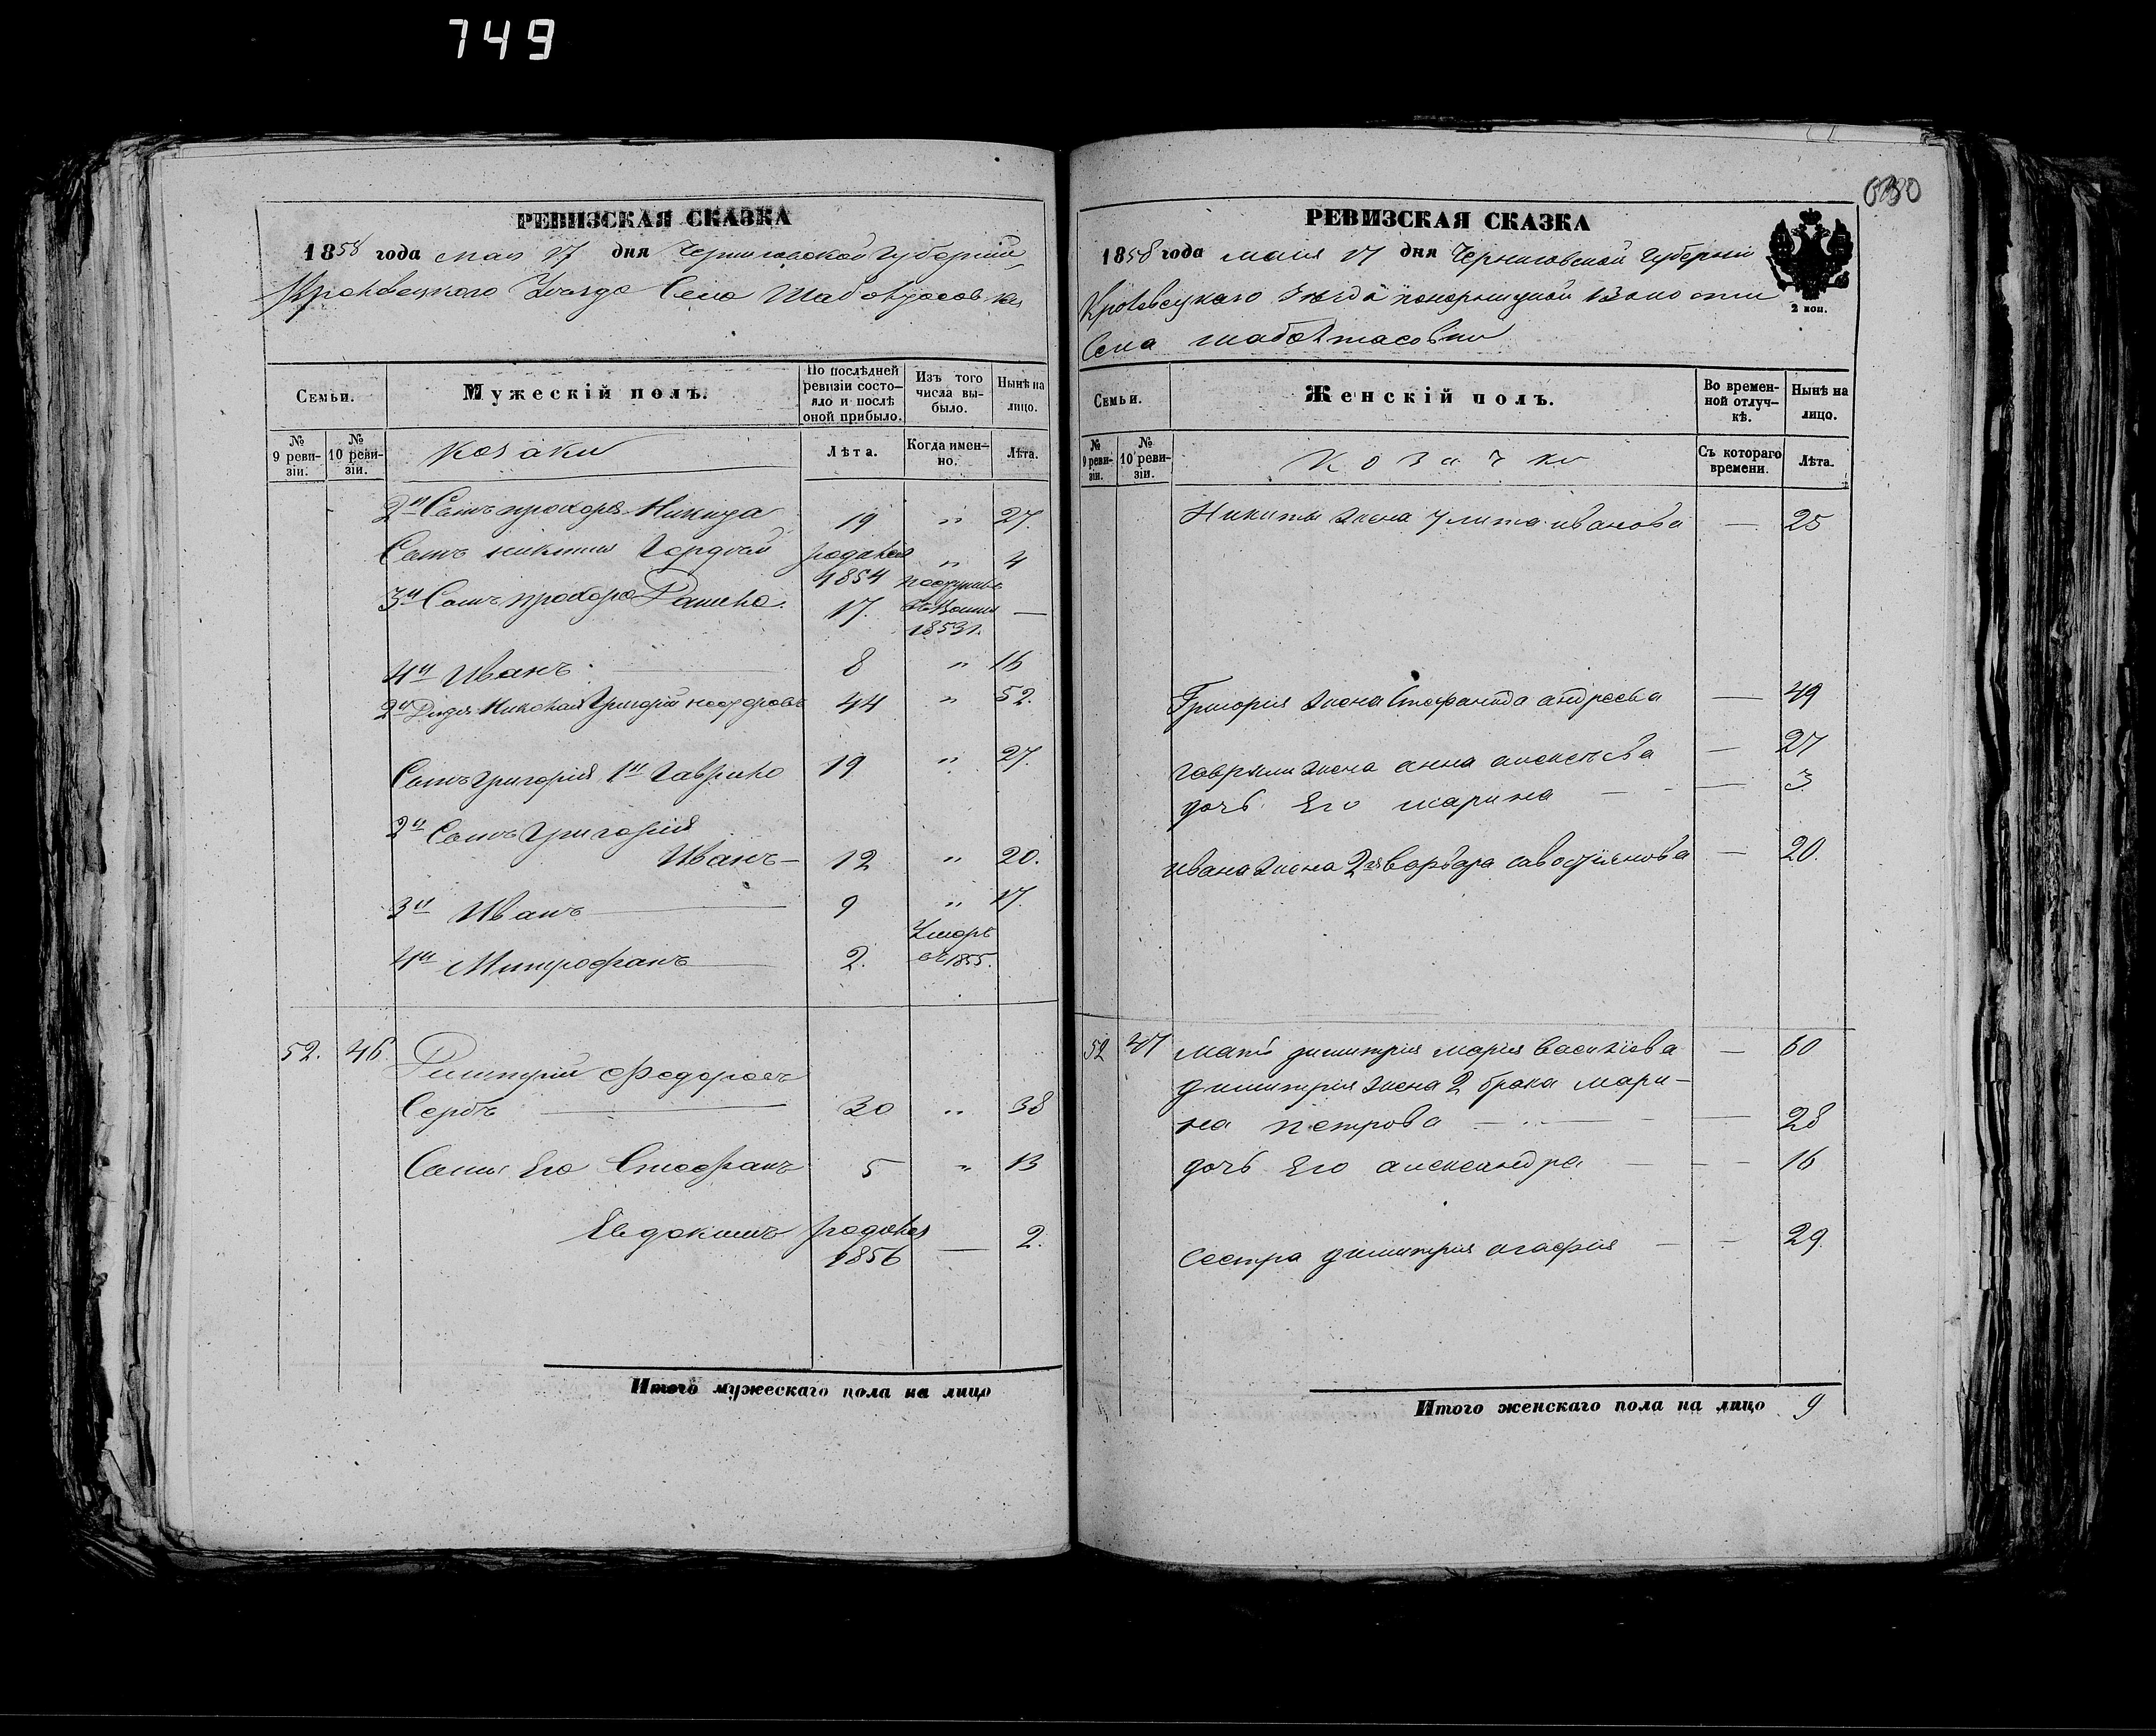 749
РЕВИЗСКАЯ СКАЗКА
1858 года мая 17 дня Черниговской Губерніи
Кролевецкого Уезда Села Шабалтасовка
Семьи.
Мужескій полъ.
По послѣдней ревизіи состо-
яло и послѣ оной прибыло.
Изъ того числа вы-
было.
Нынѣ на лицо.
№ 9 реви-
зіи.
№ 10 реви-
зіи.
козаки
Лѣта.
Когда имен-
но.
Лѣта.
2й Сынъ прокора Никита 19 " 27.
Сынъ никиты Гордѣй родился 1854 " 4
3й Сынъ прокора Данило. 17. поступилъ 1853г. —
4й Иванъ 8 " 16
2й Дядя Николая Григорій 44 " 52.
Сынъ григорія 1й Гаврило 19 " 27.
2й Сынъ Григорія
Иванъ — 12 " 20.
3й Иванъ 9 " 17.
4й Митрофанъ 2. Умеръ въ 1855.
52. 46. Димитрій Федоровъ
Сербъ 30 " 38
Сынъ Его Стефанъ 5 " 13
Евдокимъ родился 1856 — 2.
Итого мужескаго пола на лицо
030
РЕВИЗСКАЯ СКАЗКА
1858 года маия 17 дня Черниговской Губерніи
Кролевецкаго уезда понорницкой волости
2 коп.
Села шабалтасовки
Семьи.
Женскій полъ.
Во времен-
ной отлуч-
кѣ.
Нынѣ на лицо.
№ 9 реви-
зіи.
№ 10 реви-
зіи.
Козачки
Съ котораго времени.
Лѣта.
Никиты жена улита иванова — 25
Григорія жена Стефанида андреева — 49
гаврилы жена анна алексѣева — 27
дочь Его марина — 3
ивана жена 2я варвара савостіянова — 20.
52 47 мать димитрія марія василіева — 60
димитрія жена 2 брака мари-
на петрова — 28
дочь Его александра — 16
Сестра димитрія агафія — 29.
Итого женскаго пола на лицо 9